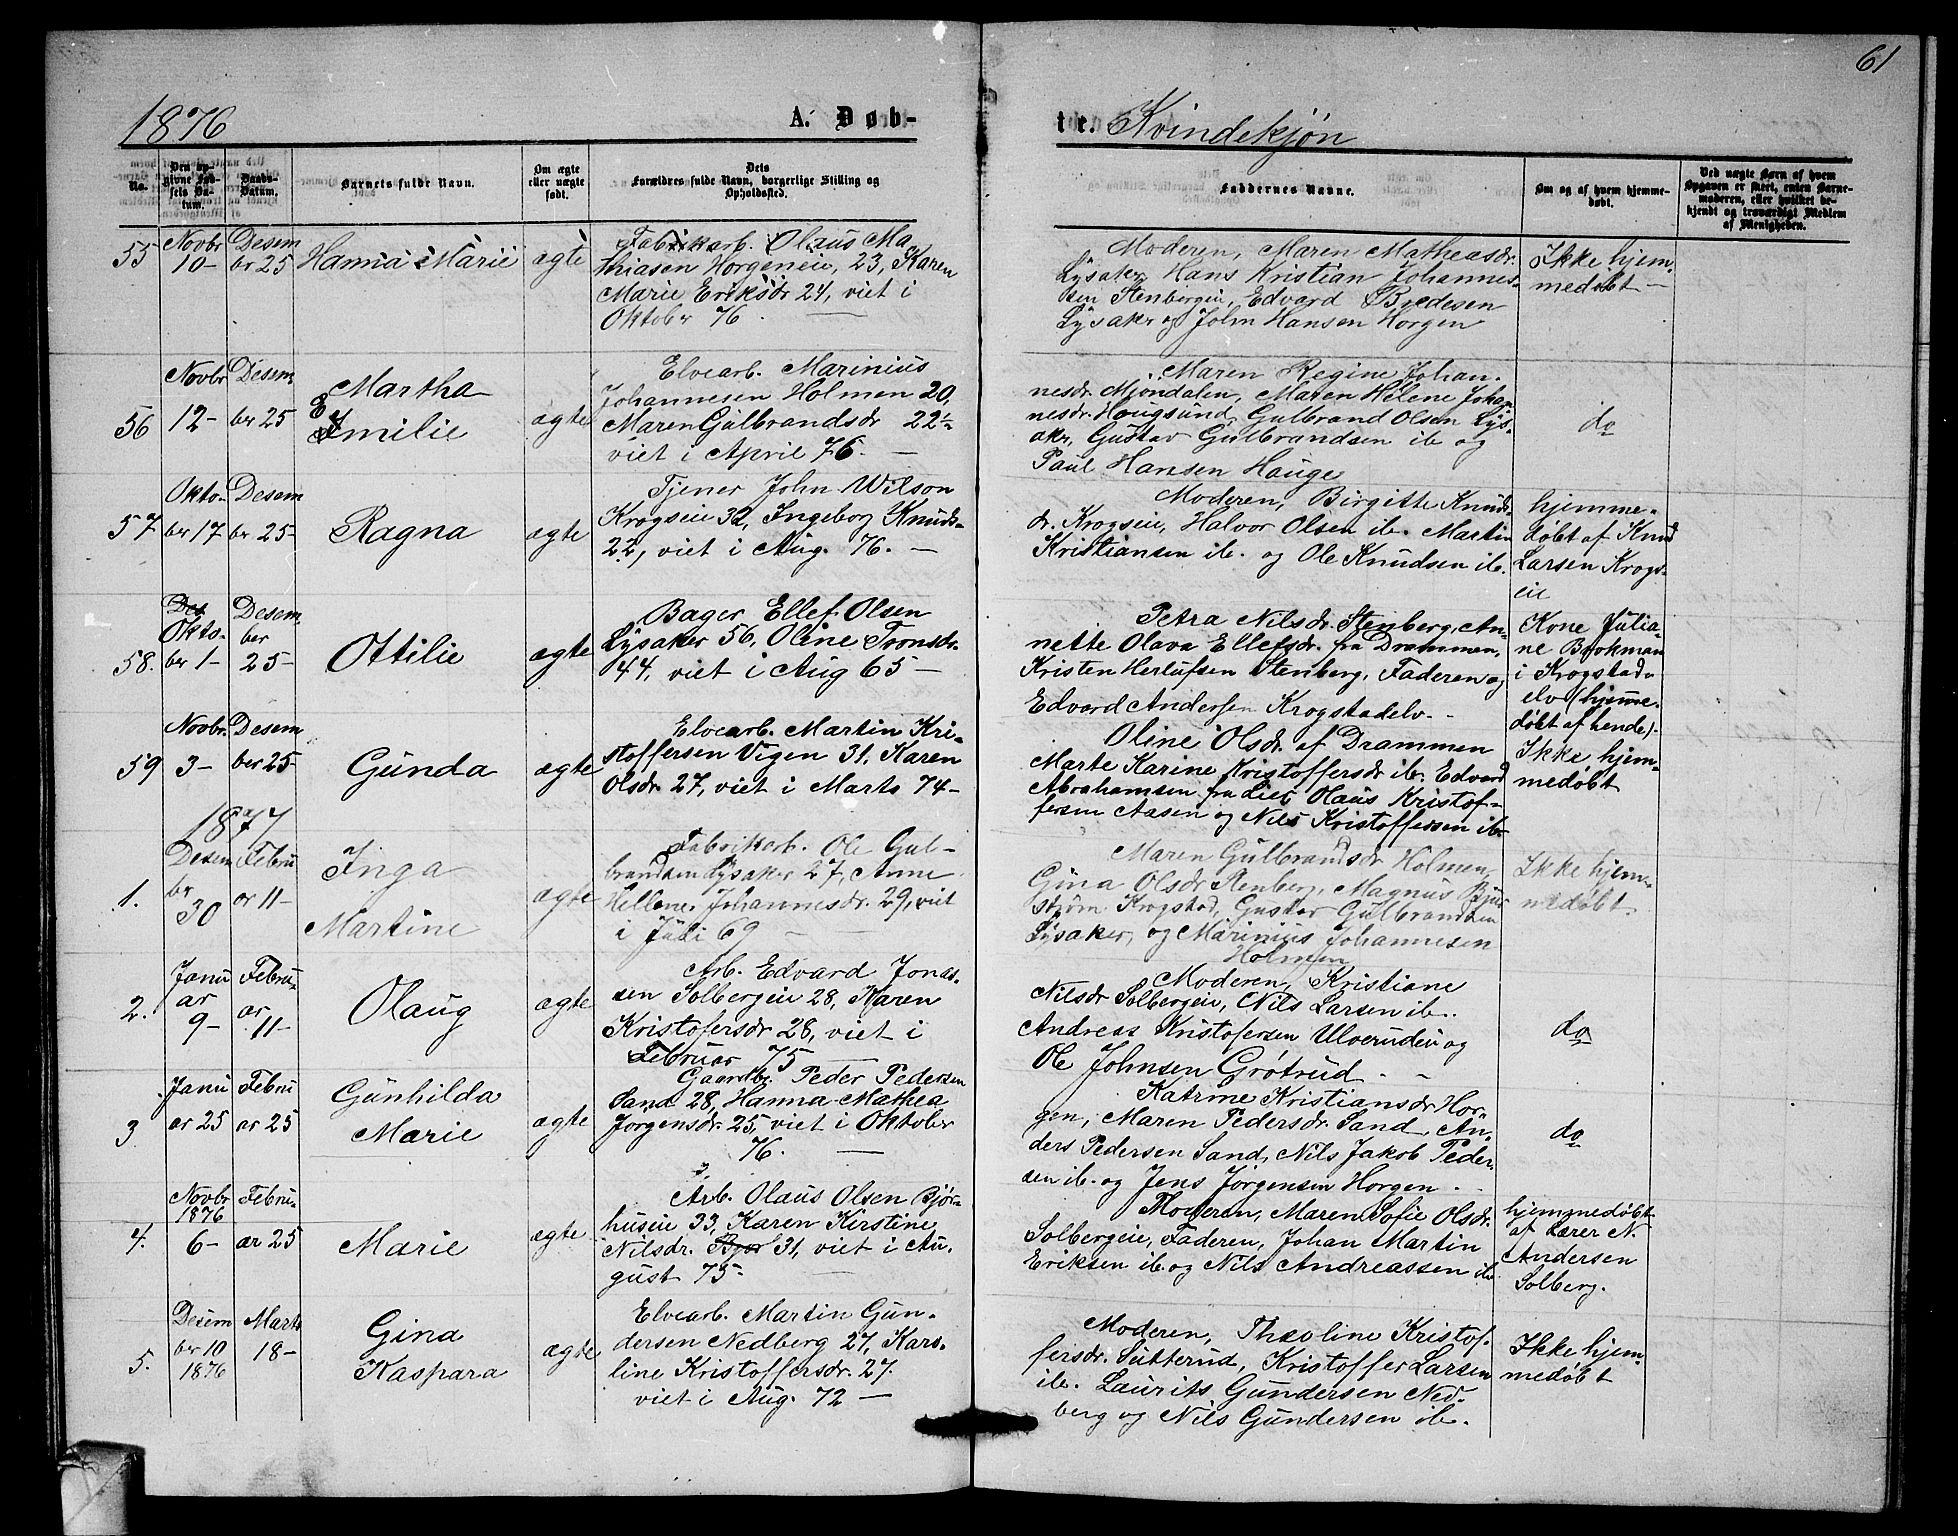 61
1876
A. Døb-
te. Kvindekjøn
No.
Den op-
givne Fød-
sels Da-
tum.
Daabs-
Datum.
Barnets fulde Navn.
Om ægte
eller uægte
født.
Dets
Forældres fulde Navn, borgerlige Stilling og
Opholdssted.
Faddernes Navne.
Om og af hvem hjemme-
døbt.
Ved uægte Børn af hvem
Opgaven er skeet, enten Barne-
moderen, eller hvilket be-
kjendt og troværdigt Medlem
af Menigheden.
55
Novbr
10-
Desem
br 25
Hanna Marie
ægte
Fabrikarb. Olaus Ma
thiasen Horgeneie, 23, Karen
Marie Eriksdr 24, viet i
Oktober 76. —
Moderen, Maren Matheasdr.
Lysaker, Hans Kristian Johannes-
sen Stenbergeie, Edvard Bredesen
Lysakr og John Hansen Horgen
Ikke hjem-
medøbt —
56
Novbr
12-
Desem
ber 25
Martha
Emilie
ægte
Elvearb. Marinius
Johannesen Holmen 20,
Maren Gulbrandsdr 22½
viet i April 76. —
Maren Regine Johan-
nesdr. Mjøndalen, Maren Helene Johan
nesdr. Hougsund, Gulbrand Olsen Lys-
akr, Gustav Gulbrandsen ib og
Paul Hansen Hauge
do
57
Okto-
ber 17
Desem
br 25-
Ragna
ægte
Tjener John Wilson
Krogseie 32, Ingeborg Knuds-
22, viet i Aug. 76. —
Moderen, Birgitte Knuds-
dr. Krogseie, Halvor Olsen ib. Martin
Kristiansen ib. og Ole Knudsen ib.
hjemme-
døbt af Knud
Larsen Krogs-
eie
58.
Des
Okto-
ber 1-
Desem
ber
25-
Ottilie
ægte
Bager Ellef Olsen
Lysaker 56, Oline Tronsdr.
44, viet i Aug 65 —
Petra Nilsdr. Stenberg, An-
nette Olava Ellefsdr. fra Drammen,
Kristen Herlufsen Stenberg, Faderen og
Edvard Andersen Krogstadelv. -
Kone Julia-
ne Brokman
i Krogstad-
elv (hjemme-
døbt af hende).
59
Novbr.
3-
Desem
ber 25-
Gunda
ægte
Elvearb. Martin Kri-
stoffersen Vigen 31, Karen
Olsdr. 27, viet i Marts 74-
Oline Olsdr. af Drammen
Marte Karine Kristoffersdr ib. Edvard
Abrahamsen fra Lier Olaus Kristof-
fersen Aasen og Nils Kristoffersen ib-
Ikke hjem-
medøbt
1877
1.
Desem
br
30
Febru
ar 11-
Inga
Martine
ægte
Fabrikarb. Ole Gul-
brandsen Lysaker 27, Anne
Hellene Johannesdr. 29, viet
i Juli 69 —
Maren Gulbrandsdr Holmen,
Gina Olsdr Stenberg, Magnus Bjur
strøm Krogstad, Gustav Gulbrandsen
Lysaker, og Marinius Johannesen
Holmen
Ikke hjem-
medøbt.
2.
Janu
ar
9-
Febru-
ar
11-
Olaug
ægte
Arb. Edvard Jonas-
sen Solbergeie 28, Karen
Kristofersdr 28, viet i
Februar 75
Moderen, Kristiane
Nilsdr Solbergeie, Nils Larsen ib.
Andreas Kristofersen Ulverudeie og
Ole Johnsen Grøtrud. -
do
3
Janu
ar 25
Febru
ar 25
Gunhilda
Marie
ægte
Gaardbr. Peder Pedersen
Sand 28, Hanna Mathea
Jørgensdr. 25, viet i Oktober
76. —
Katrine Kristiansdr Hor-
gen, Maren Pedersdr. Sand, An-
ders Pedersen Sand, Nils Jakob Peder-
sen ib. og Jens Jørgensen Horgen.
do
4.
Novbr
1876
6-
Febru-
ar 25
Marie
ægte
Arb. Olaus Olsen Bjør-
huseie 33, Karen Kirstine
Nilsdr. Bjør 31, viet i Au-
gust 75-
Moderen, Maren Sofie Olsdr.
Solbergeie, Faderen, Johan Martin
Eriksen ib. og Nils Andreassen ib.
hjemmedøbt
af Lærer N.
Andersen
Solberg.
5.
Desem
ber 10
1876
Marts
18-
Gina
Kaspara
ægte
Elvearb. Martin Gun-
dersen Nedberg 27, Kars-
line Kristoffersdr. 27.
viet i Aug. 72 —
Moderen, Theoline Kristof-
fersdr. Sutterud, Kristoffer Larsen
ib. Laurits Gundersen Ned-
berg og Nils Gundersen ib.
Ikke hjem-
medøbt